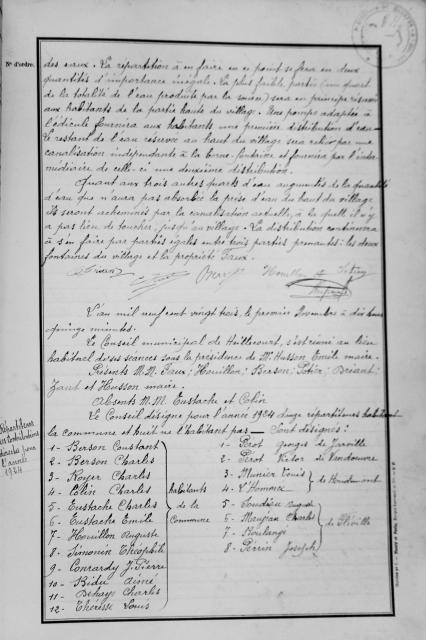 N° d'ordre.
des eaux. La répartition à en faire en ce point se fera en deux
quantités d'importance inégale. La plus faible partie (un quart
de la totalité de l'eau produite par la source) sera en principe réservée
aux habitants de la partie haute du village. Une pompe adaptée à
l'édicule fournira aux habitants une première distribution d'eau.
Le restant de l'eau réservée au haut du village sera relevé par une
canalisation indépendante à la borne-fontaine et fournira par l'inter-
médiaire de celle-ci une deuxième distribution.
Quant aux trois autres quarts d'eau augmentés de la quantité
d'eau que n'aura pas absorbée la prise d'eau du haut du village
ils seront acheminés par la canalisation actuelle, à laquelle il n'y
a pas lieu de toucher, jusqu'au village. La distribution continuera
à s'en faire par parties égales entre trois parties prenantes : les deux
fontaines du village et la propriété Faux.
L'an mil neuf cent vingt trois, le premier Novembre à dix heures
quinze minutes.
Le Conseil municipal de Heillecourt, s'est réuni au lieu
habituel de ses séances sous la présidence de Mr Husson Emile maire.
Présents M.M. Faux; Houillon; Berson; Briant;
et Husson maire.
Absents M.M. Eustache et Colin
Le Conseil désigne pour l'année 1924 douze répartiteurs habitant
la commune et huit ne l'habitant pas — Sont désignés :
Répartiteurs
des Contributions
directes pour
l'année
1924
1- Berson Constant
2- Berson Charles
3- Royer Charles
4- Colin Charles
5- Eustache Charles
6- Eustache Emile
7- Houillon Auguste
8- Simonin Théophile
9- Conrardy J. Pierre
10- Bidu Aimé
11- Dehaye Charles
12- Thérèsse Louis
habitants
de la
Commune
1- Pérot Georges de Jarville
2- Pérot Victor de Vandoeuvre
3- Munier Louis
4- L'Hommée
de Houdemont
5- Toudieu
6- Maujean Charles
7- Boulangé
8- Perrin Joseph
de Fléville